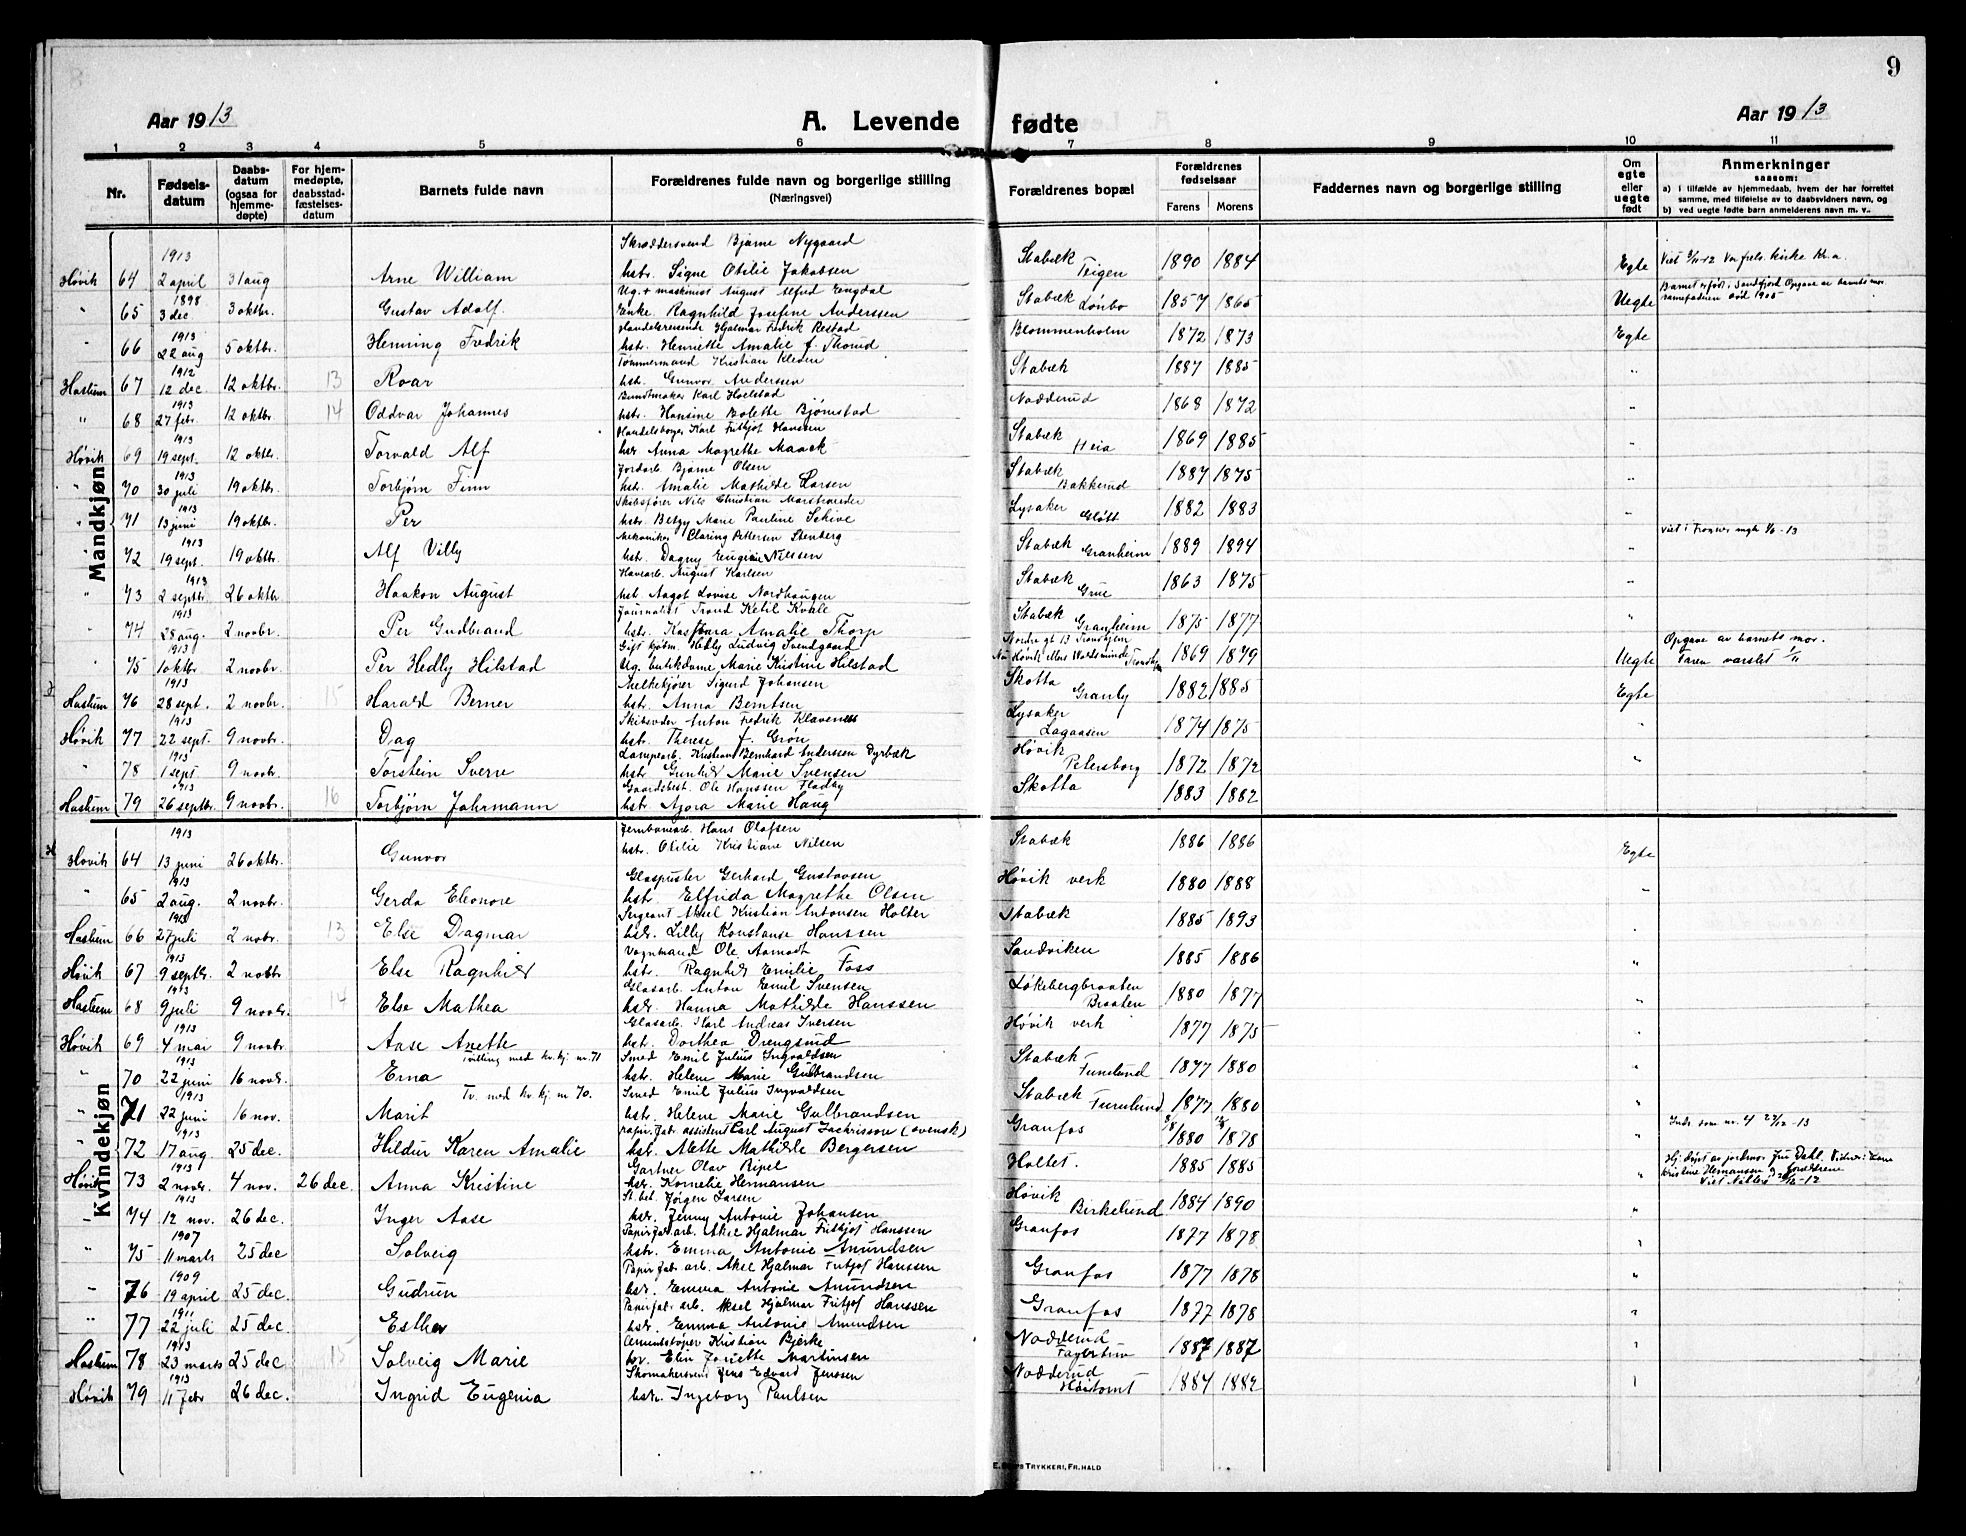 9
Aar 1913
A. Levende fødte
Aar 1913
1 2 3 4 5 6 7 8 9 10 11
Nr. Fødsels-datum Daabs-datum (ogsaa for hjemme-døpte) For hjem-medøpte, daabsstad-fæstelses-datum Barnets fulde navn Forældrenes fulde navn og borgerlige stilling (Næringsvei) Forældrenes bopæl Forældrenes fødselsaar Farens Morens Faddernes navn og borgerlige stilling Om egte eller uegte født Anmerkninger saasom: a) i tilfælde av hjemmedaab, hvem der har forrettet samme, med tilføielse av to daabsvidners navn, og b) ved uegte fødte barn anmelderens navn m. v.
Mandkjøn
1913 Skræddersvend Bjarne Nygaard
Høvik 64 2 april 31 aug Arne William hstr. Signe Otilie Jakobsen Stabæk Teigen 1890 1884 Egte
1898 Ug. + maskinist August Alfred Engdal
" 65 3 dec 3 oktbr. Gustav Adolf. Enke Ragnhild Josefine Anderssen Stabæk 1857 1865 Uegte
1913 Handelsreisende Hjalmar Fredrik Restad
" 66 22 aug 5 oktbr. Henning Fredrik hst. Henriette Amalie f. Thorud Blommenholm 1872 1873 Egte
1912 Tømmermand Kristian
Haslum 67 12 dec 12 oktbr. 13 Roar hst. Gunvor Anderssen Stabæk 1887 1885 "
1913 Buntmaker Karl
" 68 27 febr. 12 oktbr. 14 Oddvar Johannes hstr. Hansine Bolette Bjørnstad Nadderud 1868 1872 "
1913 Karl Fritjof Hansen
Høvik 69 19 sept. 12 oktbr. Torvald Alf hstr Anna Magrethe Maack Stabæk Heia 1869 1885 "
1913 Jordarb. Bjarne Olsen
" 70 30 juli 19 oktbr. Torbjørn Finn hst. Amalie Mathilde Larsen Stabæk Bakkerud 1887 1875 "
1913 Skibsfører Nils Christian
" 71 13 juni 19 oktbr. Per hstr. Betzy Marie Pauline Schive Lysaker 1882 1883 "
1913 Mekaniker Pettersen Stenberg
" 72 19 sept. 19 oktbr. Alf Villy hst. Dagny Eugenie Nilsen Stabæk Granheim 1889 1894 " viet i
1913 Havearb. August Karlsen
" 73 2 septbr. 26 oktbr. Haakon August hst. Aagot Lovise Nordhaugen Stabæk Grue 1863 1875 "
1913 Journalist Trond Ketil Kvale
" 74 28 aug. 2 novbr. Per Gudbrand hstr. Amalie Thorp Stabæk Granheim 1875 1877 "
1913 Gift kjøbm Hedly Ludvig Svendgaard
" 75 1 oktbr. 2 novbr. Per Hedly Hilstad Ug. butikdame Marie Kristine Hilstad 1869 1879 Uegte Opgave av barnets mor. Faren varslet 1/11
1913 Melkekjører Sigurd Johansen
Haslum 76 28 sept. 2 novbr. 15 Harald Berner hst. Anna Berntsen Skotta Granly 1882 1885 Egte
1913 Anton Fredrik Klaveness
Høvik 77 22 sept. 9 novbr. Dag hst. Therese f. Grøn Lysaker Lagaasen 1874 1875 "
1913 Lampearb. Kristian Bernhard Anderssen Dyrbæk
" 78 1 sept 9 novbr. Torstein Sverre hstr Gunhild Marie Svensen Høvik Petersborg 1872 1872 "
1913 Gaardsbest. Ole Hanssen Fladby
Haslum 79 26 septbr. 9 novbr. 16 Torbjørn Jahrmann hstr. Agora Marie Haug Skotta 1883 1882
Kvindekjøn
1913 Jernbanearb. Hans Olafsen
Høvik 64 13 juni 26 oktbr. Gunvor hstr. Otilie Kristiane Nilsen Stabæk 1886 1886 Egte
1913 Glaspuster Gerhard Gustavsen
" 65 2 aug. 2 novbr. Gerda Eleonore hst. Elfrida Magrethe Olsen Høvik verk 1880 1888 "
1913 Sergeant Aksel Kristian Antonsen Holter
Haslum 66 27 juli 2 novbr. 13 Else Dagmar hstr. Lilly Konstanse Hanssen Stabæk 1885 1893 "
1913 Vognmand Ole Aamodt
Høvik 67 9 septbr. 2 novbr Else Ragnhild hst. Ragnhild Emilie Foss Sandviken 1885 1886 "
1913 Glasarb. Anton Emil Svensen
Haslum 68 9 juli 9 novbr. 14 Else Mathea hstr Hanna Mathilde Hanssen Løkebergbraaten Braaten 1880 1877 "
1913 Glasarb. Karl Andreas Iversen
Høvik 69 4 mai 9 novbr. Aase Anette hst. Dorthea Drengsrud Høvik verk 1877 1875 "
1913 Tvilling med kv. kj. nr. 71 Smed Emil Julius Ingvaldsen
" 70 22 juni 16 novbr. Erna hstr. Helene Marie Gulbrandsen Stabæk Furulund 1877 1880 "
1913 Tv. med kv. kj. nr. 70. Smed Emil Julius Ingvaldsen
" 71 22 juni 16 nov. Marit hstr. Helene Marie Gulbrandsen Stabæk Furulund 1877 1880 "
1913 papir.fabr. assistent Carl August Zachrisson (svensk)
" 72 17 aug. 25 dec. Hildur Karen Amalie hst. Alette Mathilde Bergersen Granfos 1880 1878 " Inds som nr. 4 22/12-13
1913 Gartner Olav Ripel
Høvik 73 2 novbr. 4 nov. 26 dec. Anna Kristine hstr. Kornelie Hermansen Holtet. 1885 1885 " Hj. døpt av jordmor Dahl. Vidner:
1913 St. bet. Jørgen Larsen
" 74 12 nov. 26 dec. Inger Aase hstr. Jenny Antonie Johansen Høvik Birkelund 1884 1890 "
1907 Papirfabr arb. Aksel Hjalmar Fritjof Hanssen
" 75 11 marts 25 dec Solveig hstr. Emma Antonie Amundsen Granfos 1877 1878 "
1909 Papir fabr arb. Aksel Hjalmar Fritjof Hanssen
" 76 19 april 25 dec. Gudrun hstr. Emma Antonie Amundsen Granfos 1877 1878 "
1911 Papirfabr arb. Aksel Hjalmar Fritjof Hanssen
" 77 22 juli 25 dec. Esther hstr. Emma Antonie Amundsen Granfos 1877 1878 "
1913 Cementstøper Kristian Bjerke
Haslum 78 23 marts 25 dec 15 Solveig Marie Martinsen Nadderud 1887 1887 "
1913 Skomakersvend Jens Edvard Jenssen
Høvik 79 11 febr 26 dec. Ingrid Eugenia hstr. Ingeborg Paulsen Nadderud 1884 1882
TRYKKERI, FR. HALD